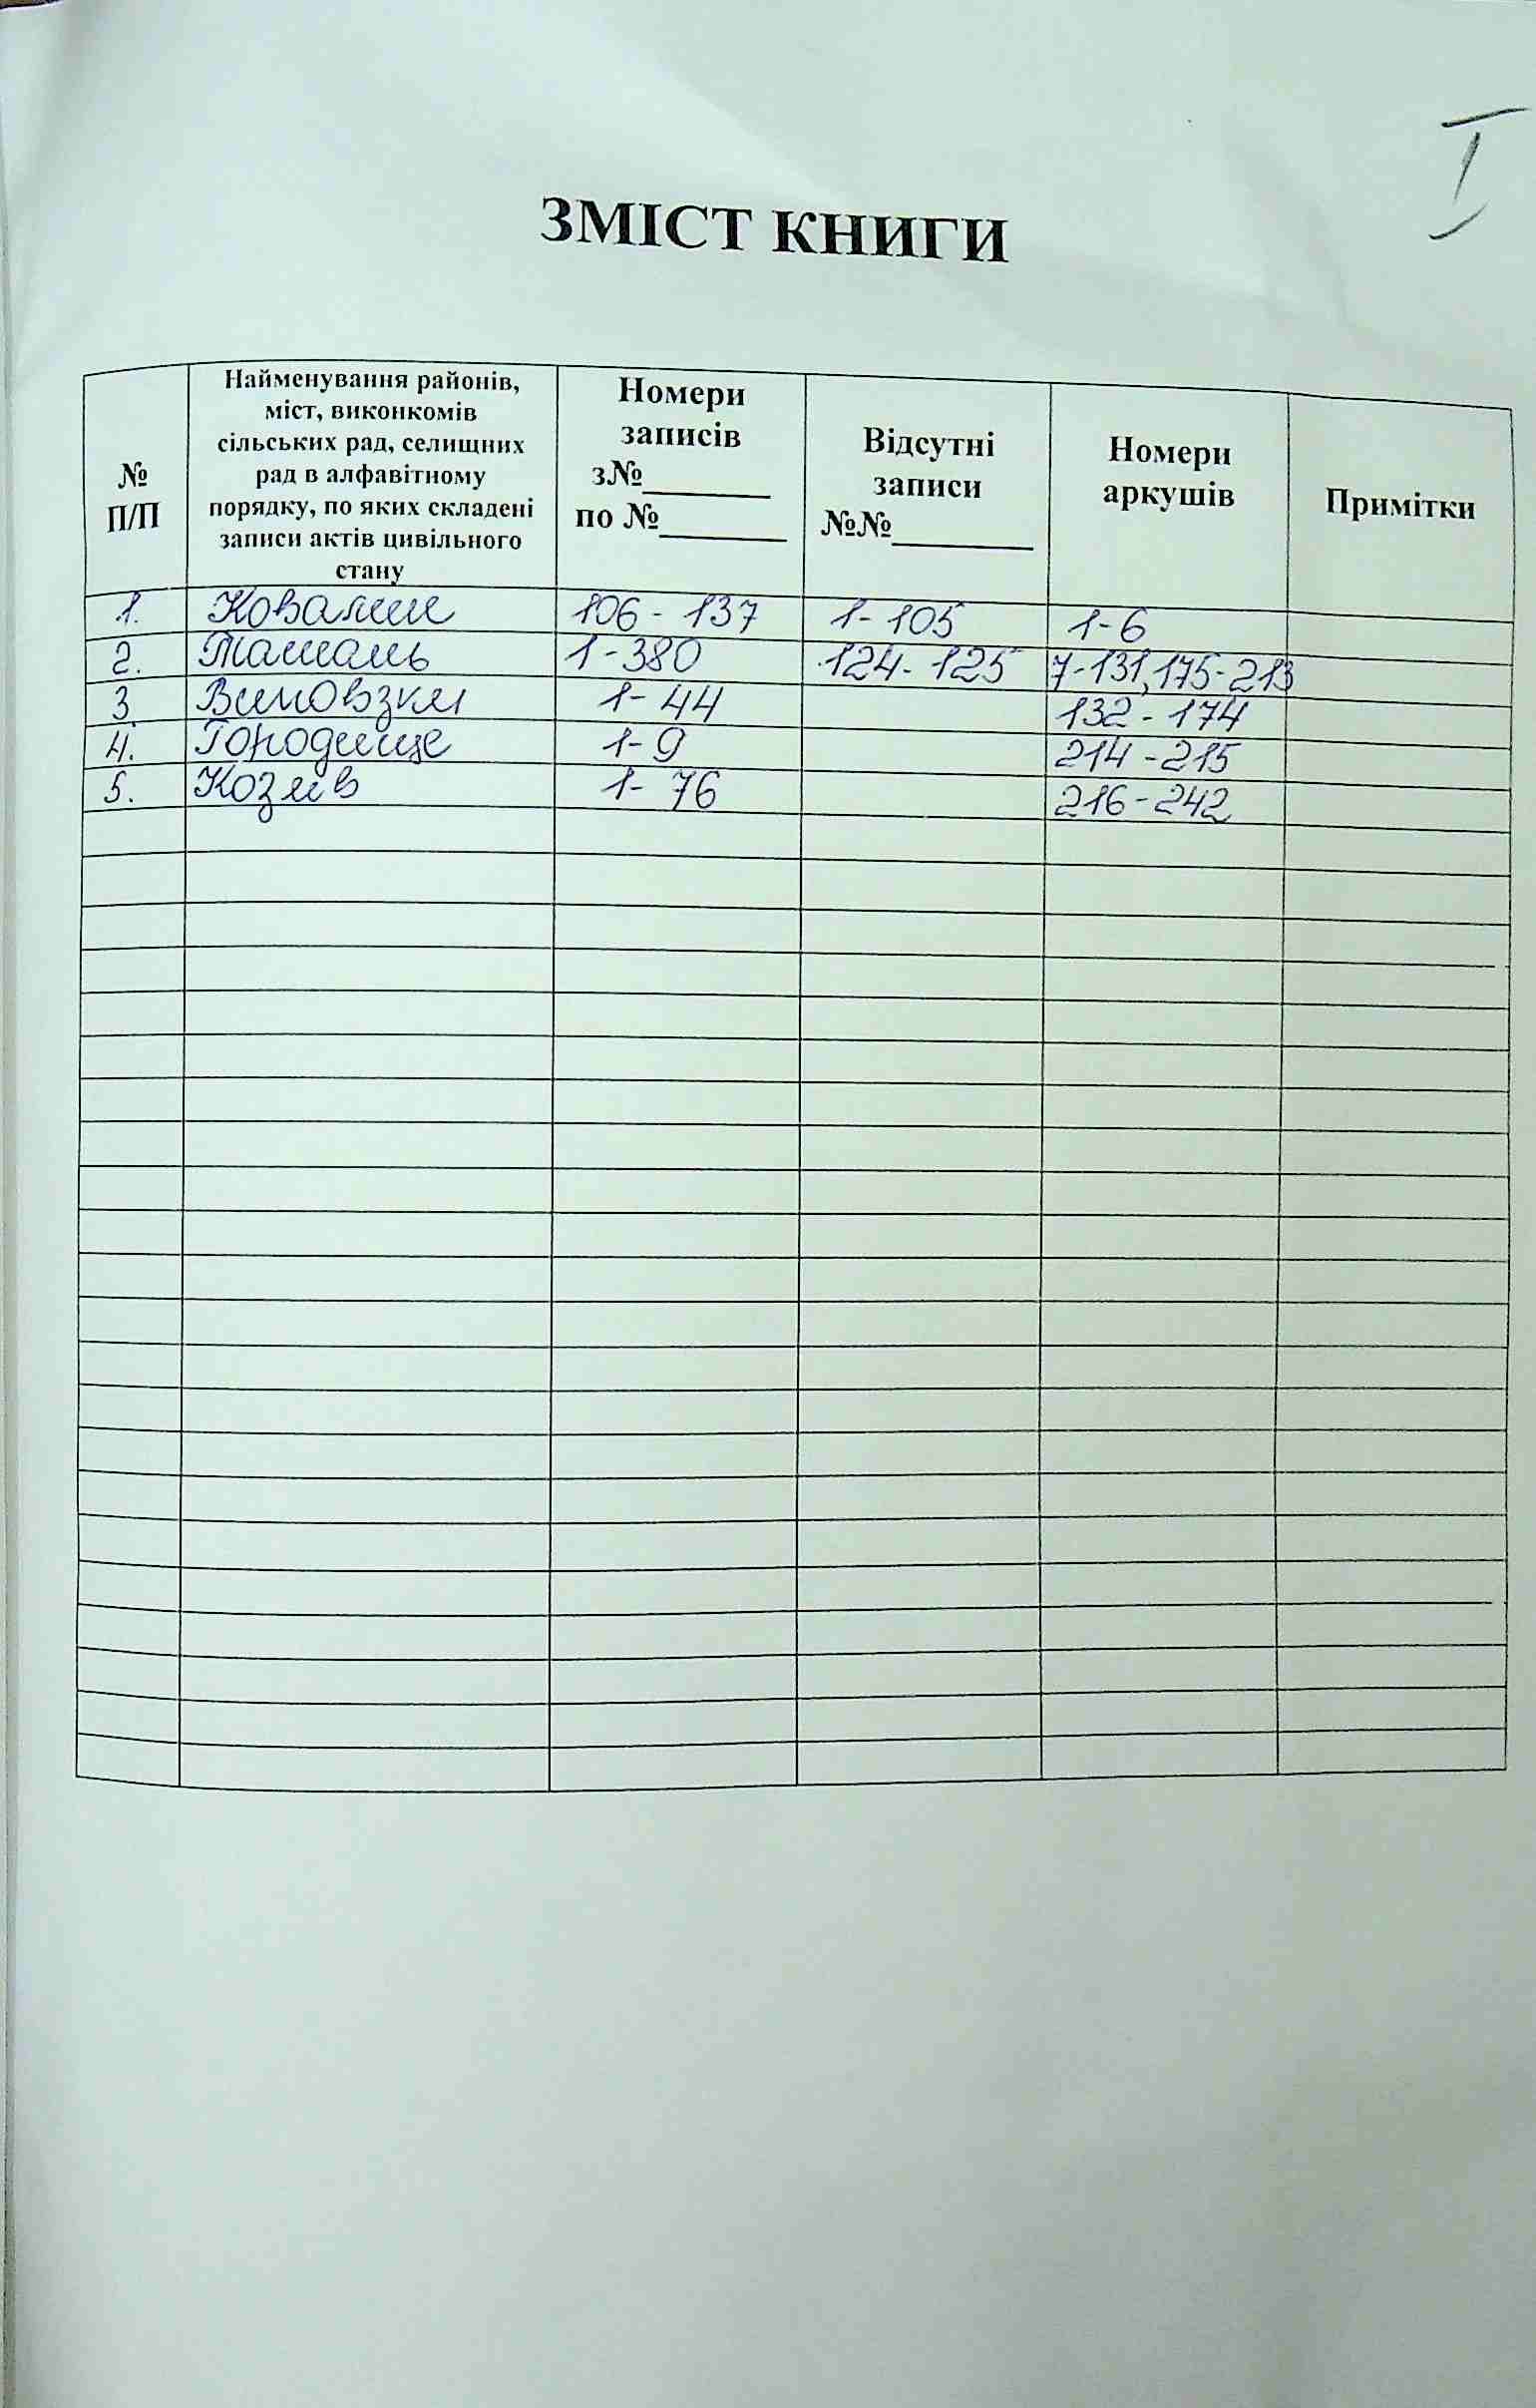 I
ЗМІСТ КНИГИ
№ П/П
Найменування районів, міст, виконкомів сільських рад, селищних рад в алфавітному порядку, по яких складені записи актів цивільного стану
Номери записів з№_______ по №_______
Відсутні записи №№________
Номери аркушів
Примітки
1. Ковалин 106 - 137 1- 105 1-6
2. Ташань 1-380 124- 125 7-131, 175-213
3. 1- 44 132 - 174
4. Городище 1- 9 214 -215
5. Козлів 1- 76 216-242